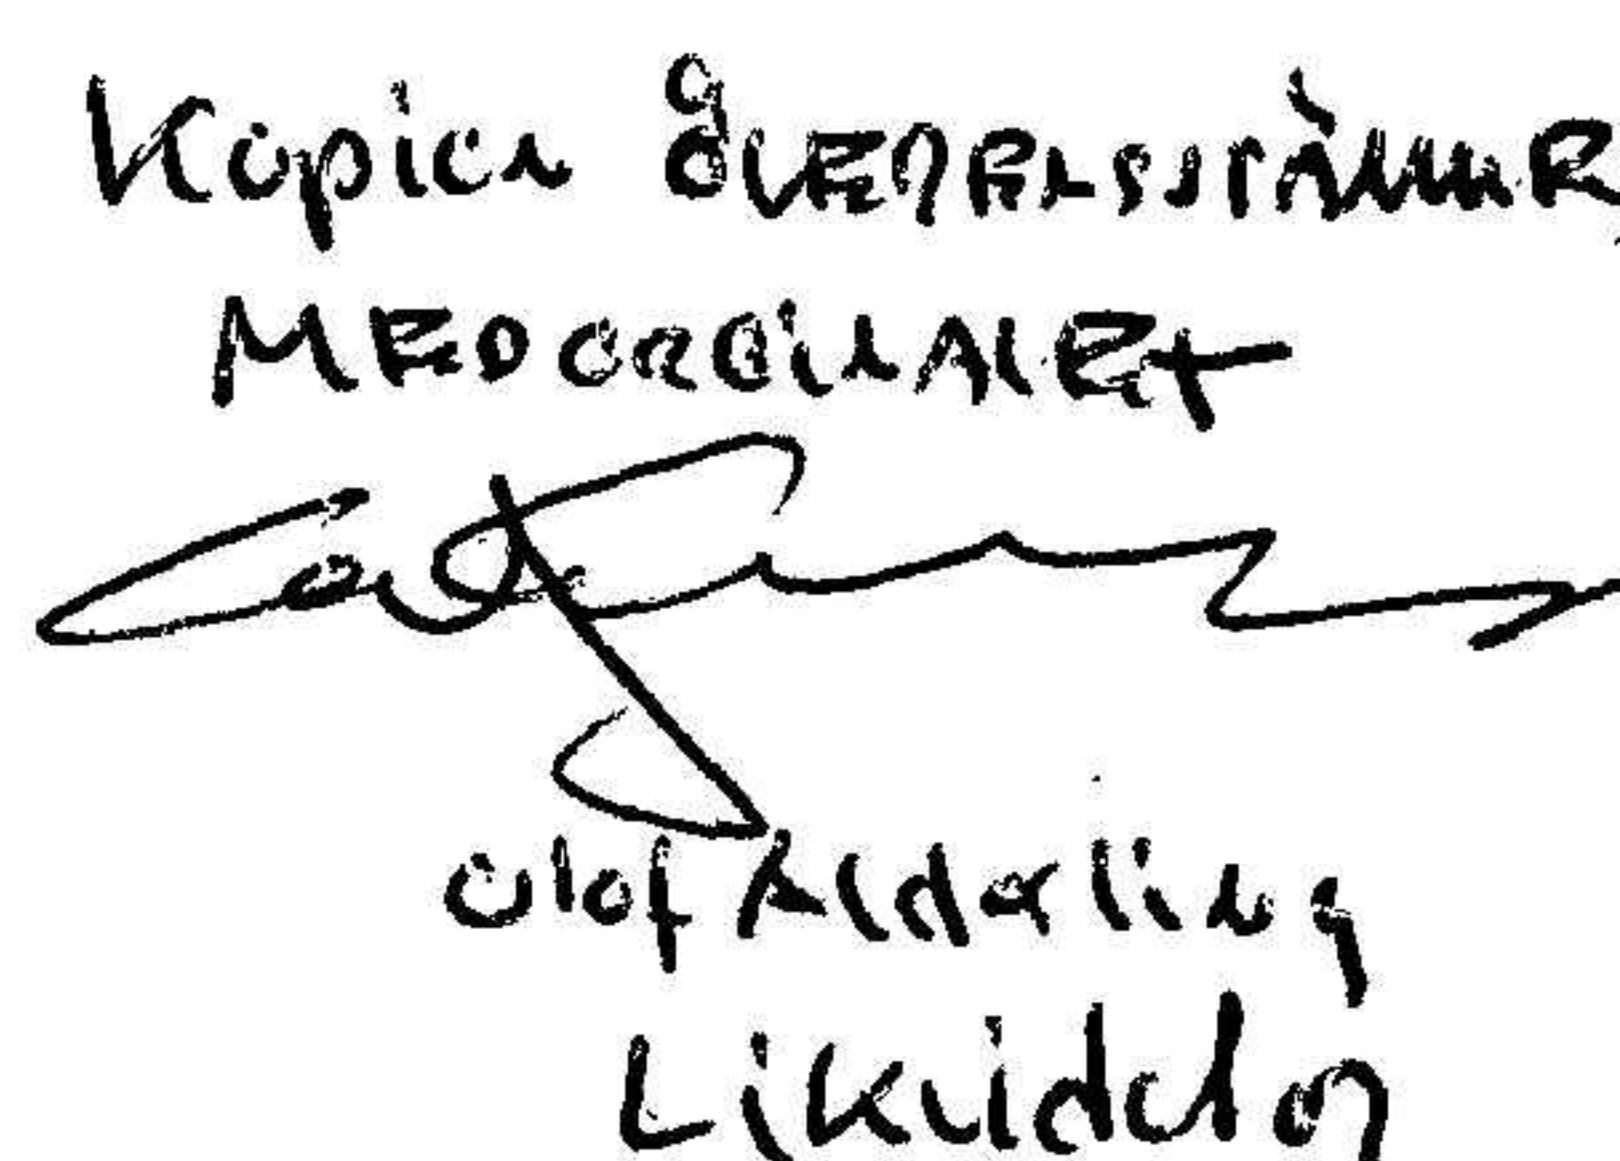 Kopian ÖVERENSSTÄMMER
MED ORGINALET
Olof Alderling
Likvidator